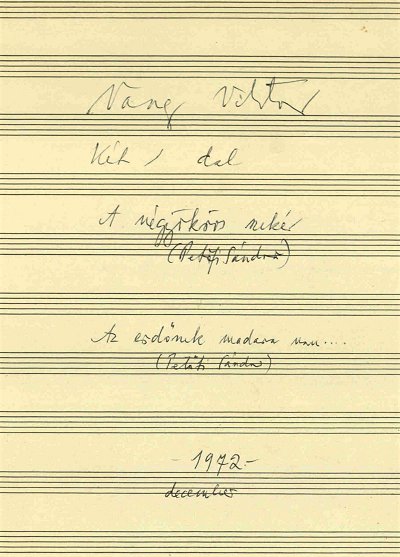 Viktor
Két dal
A négyökrös szekér
(Petőfi Sándor)
Az erdőnek madara van....
(Petőfi Sándor)
- 1972.-
december